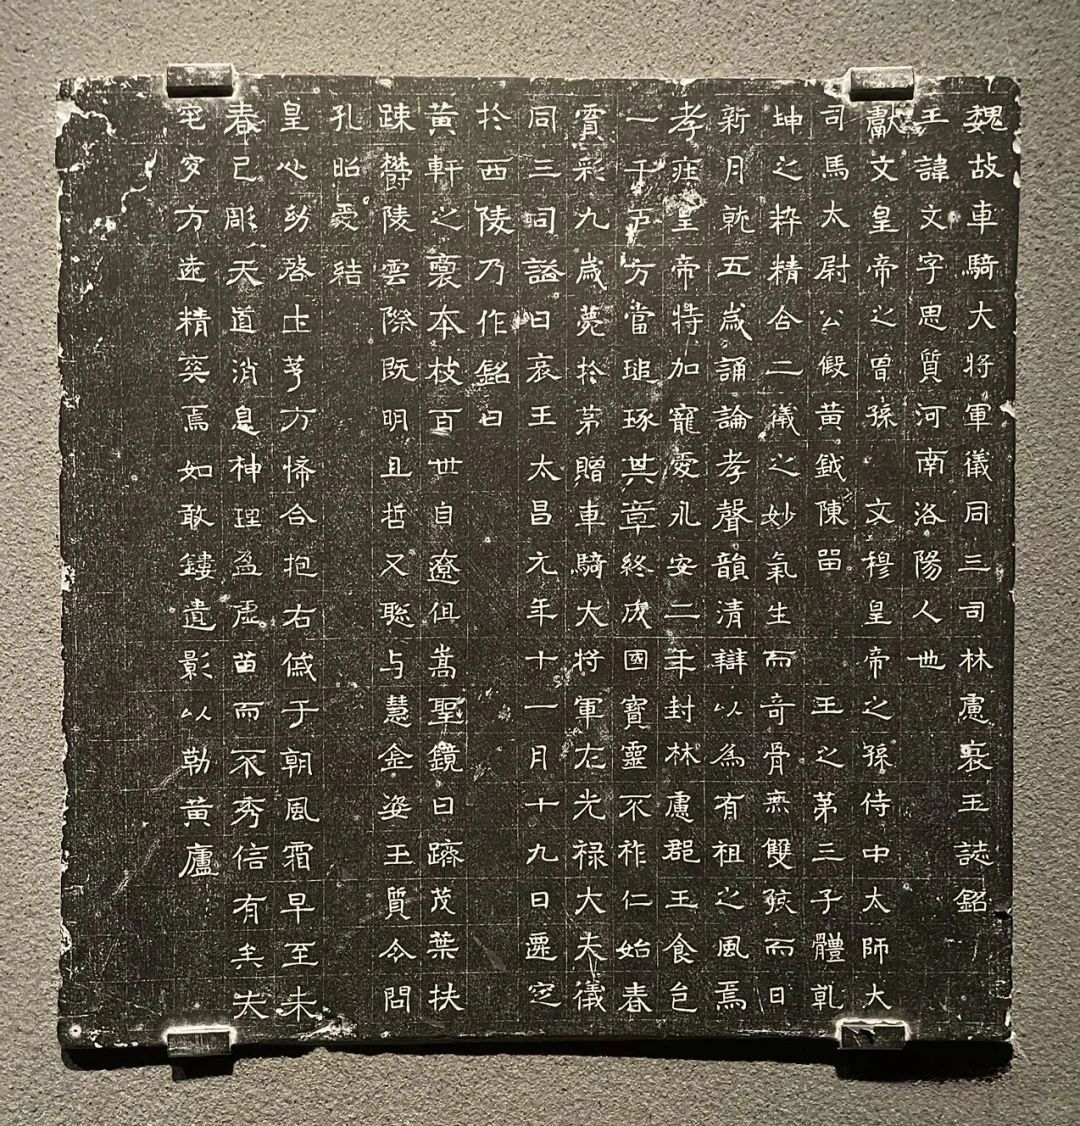 魏故車騎大將軍儀同三司林慮哀王誌銘
王諱文字思質河南洛陽人也
獻文皇帝之曾孫 文穆皇帝之孫侍中太師大
司馬太尉公假黃鉞陳留 王之第三子體乹
坤之粹精合二儀之妙氣生而奇骨無雙孩而日
新月就五歲誦論孝聲韻清辯以為有祖之風焉
孝莊皇帝特加寵愛永安二年封林慮郡王食邑
一千戶方當追琢其章終成國寶靈不祚仁始春
霣彩九歲薨於第贈車騎大將軍左光祿大夫儀
同三司謚曰哀王太昌元年十一月十九日遷窆
於西陵乃作銘曰
黃軒之裔本枝百世自遼徂嵩聖鏡曰躋茂葉扶
踈欝陵雲際既明且哲又聡与慧金姿玉質令問
孔昭愛結
皇心初啓土茅方悕合抱右戚于朝風霜早至未
春已彫天道消息神理盈虛苗而不秀信有矣夫
窀穸方遠精爽焉如敢鏤遺影以勒黃廬